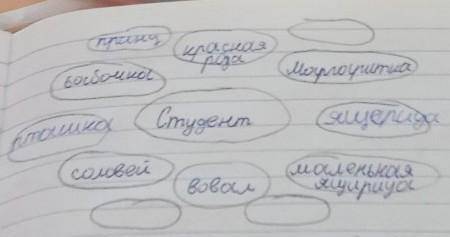 принц
красная
роза
бабочка
Маргаритка
Студент
ящерица
пташка
соловей
вовал
маленькая
ящирица